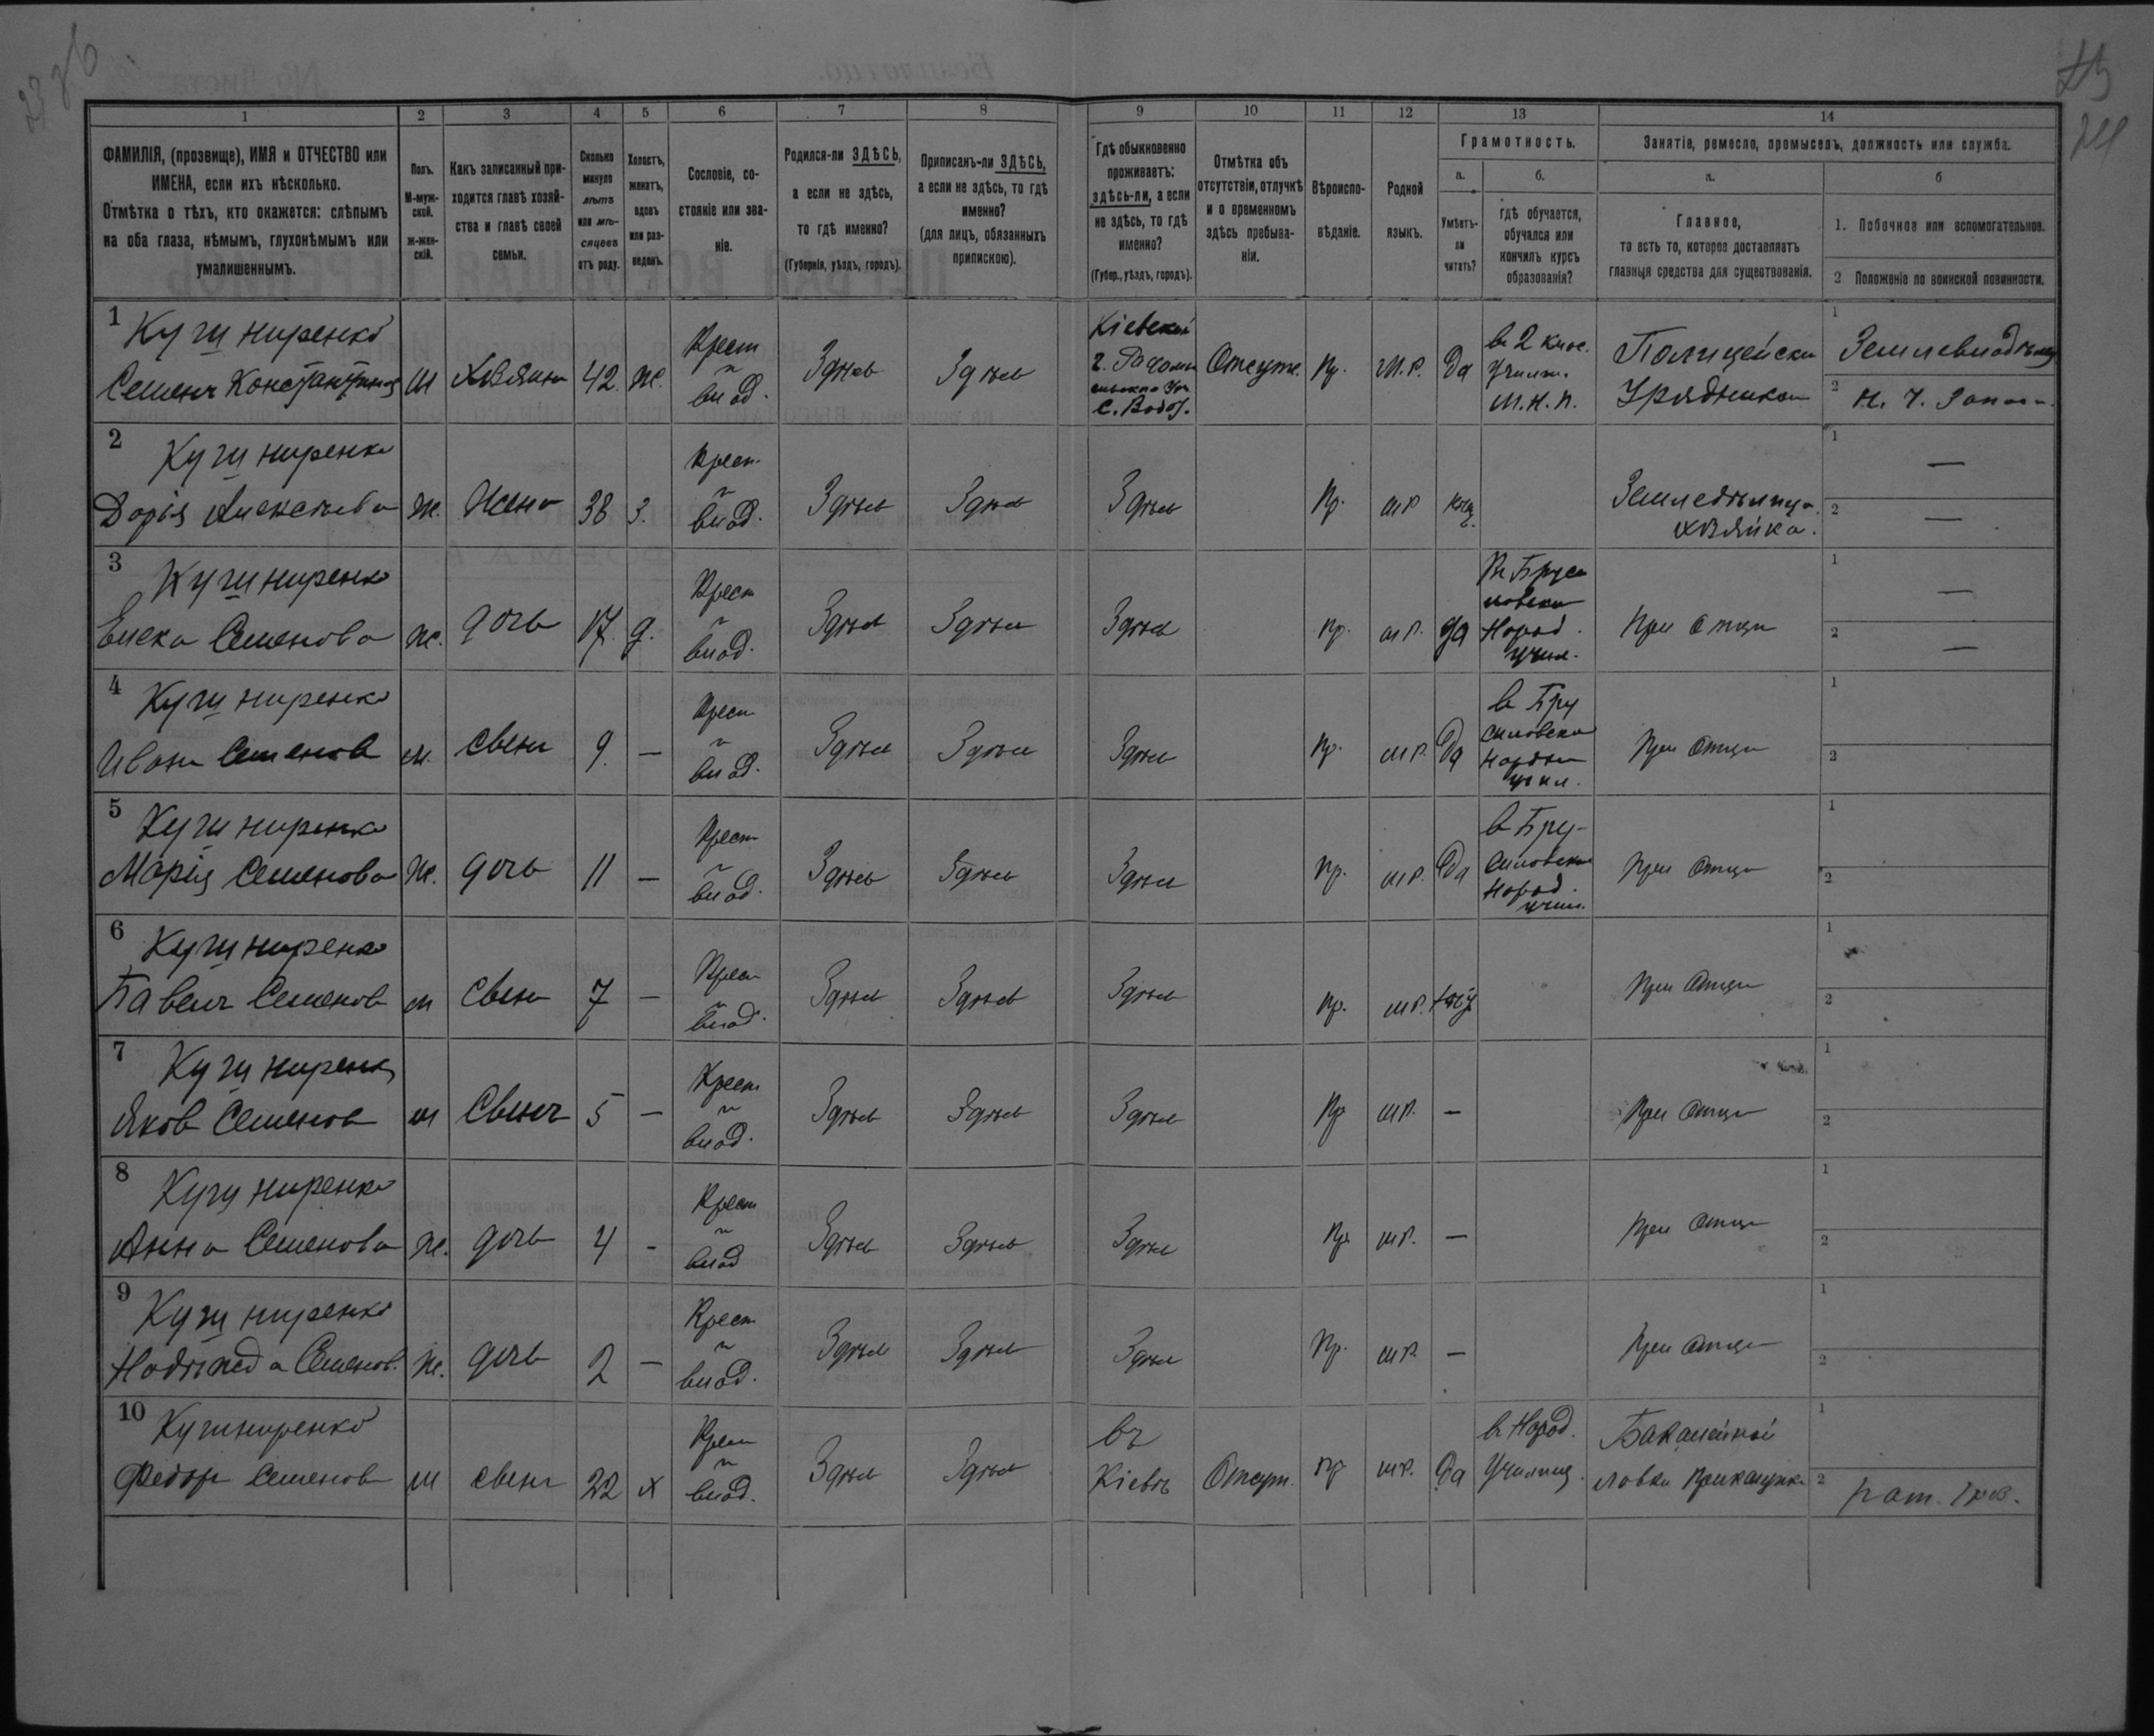 1 2 3 4 5 6 7 8 9 10 11 12 13 14
ФАМИЛІЯ, (прозвище), ИМЯ и ОТЧЕСТВО или
ИМЕНА, если ихъ нѣсколько.
Отмѣтка о тѣхъ, кто окажется: слѣпымъ
на оба глаза, нѣмымъ, глухонѣмымъ или
умалишеннымъ.
Полъ.
М-муж-
ской.
Ж-жен-
скій.
Какъ записанный при-
ходится главѣ хозяй-
ства и главѣ своей
семьи.
Сколько
минуло
лѣтъ
или мѣ-
сяцевъ
отъ роду.
Холостъ,
женатъ,
вдовъ
или раз-
веденъ.
Сословіе, со-
стояніе или зва-
ніе.
Родился-ли ЗДѢСЬ,
а если не здѣсь,
то гдѣ именно?
(Губернія, уѣздъ, городъ).
Приписанъ-ли ЗДѢСЬ,
а если не здѣсь, то гдѣ
именно?
(для лицъ, обязанныхъ
припискою).
Гдѣ обыкновенно
проживаетъ:
здѣсь-ли, а если
не здѣсь, то гдѣ
именно?
(Губер., уѣздъ, городъ).
Отмѣтка объ
отсутствіи, отлучкѣ
и о временномъ
здѣсь пребыва-
ніи.
Вѣроиспо-
вѣданіе.
Родной
языкъ.
Грамотность.
а.
Умѣетъ-
ли
читать?
б.
гдѣ обучается,
обучался или
кончилъ курсъ
образованія?
Занятія, ремесло, промыселъ, должность или служба.
а.
Главное,
то есть то, которое доставляетъ
главныя средства для существованія.
б
1. Побочное или вспомогательное.
2 Положеніе по воинской повинности.
1 Кушниренко
Семенъ Константинов м Хозяин 42 ж. Крест и влад. Здѣсь Здѣсь
Кіевской
с. Водот.
Отсутс. Пр. М.Р. Да
в 2 клас.
Учили.
М.Н.П.
Полицейски
Урядником
1 Землевладѣлец
2 Н. Ч. Запас
2 Кушниренко
Дарія Алексѣева ж. Жена 38 з. Крест и влад. Здѣсь Здѣсь Здѣсь Пр. м р
Земледѣлица
хозяйка.
1 —
2 —
3 Кушниренко
Семенова ж. дочь 17. д. Крест и влад. Здѣсь Здѣсь Здѣсь пр. м р. да
Народ.
учил.
При Отци
1 —
2 —
4 Кушниренко
Иван Семенов м. Свин 9. — Крест и влад. Здѣсь Здѣсь Здѣсь пр. м р. Да
в Бру
силовском
учил.
При Отци
1
2
5 Кушниренко
Марія Семенова ж. дочь 11 — Крест и влад. Здѣсь Здѣсь Здѣсь пр. м р. Да
в Бру-
силовском
Народ.
учил.
При Отци
1
2
6 Кушниренко
Павелъ Семенов м Свин 7 — Крест и влад. Здѣсь Здѣсь Здѣсь пр. м р.
При Отци
1
2
7 Кушниренко
Яков Семенов м Свинъ 5 — Крест и влад. Здѣсь Здѣсь Здѣсь пр м р. —
При Отци
1
2
8 Кушниренко
Анна Семенова ж. дочь 4 - Крест и влад Здѣсь Здѣсь Здѣсь пр м р. —
При Отци
1
2
9 Кушниренко
Надѣжеда Семенов. ж. дочь 2 — Крест и влад. Здѣсь Здѣсь Здѣсь пр. м р. —
При Отци
1
2
10 Кушниренко
Федор Семенов м свин 22 х Крест и влад. Здѣсь Здѣсь
въ
Кіевѣ
Отсут. пр м р. Да
в Народ.
Училищ.
Бакалейной
лавки Прикащик
1
2 рат.